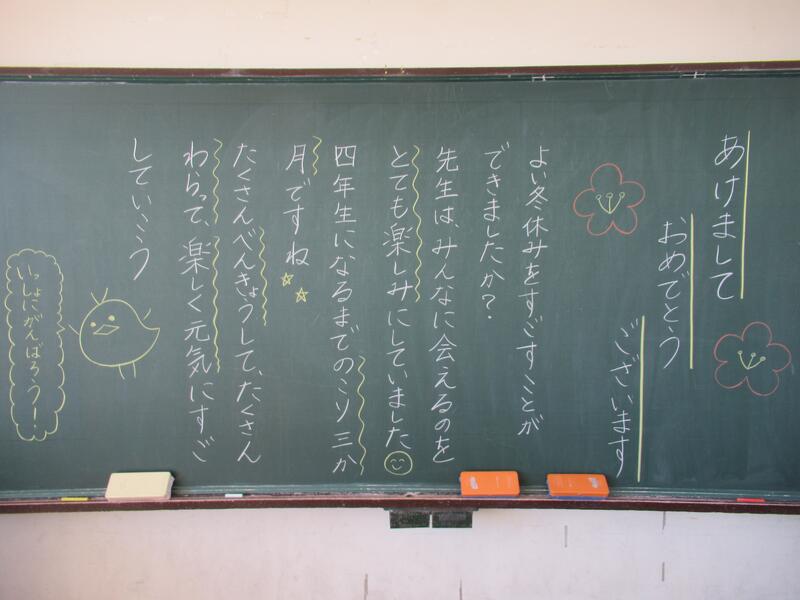 あけまして
おめでとう
ございます
よい冬休みをすごすことが
できましたか?
先生は、みんなに会えるのを
とても楽しみにしていました
四年生になるまでのこり三か
月ですね
たくさんべんきょうして、たくさん
わらって、楽しく元気にすご
していこう
いっしょにがんばろう!